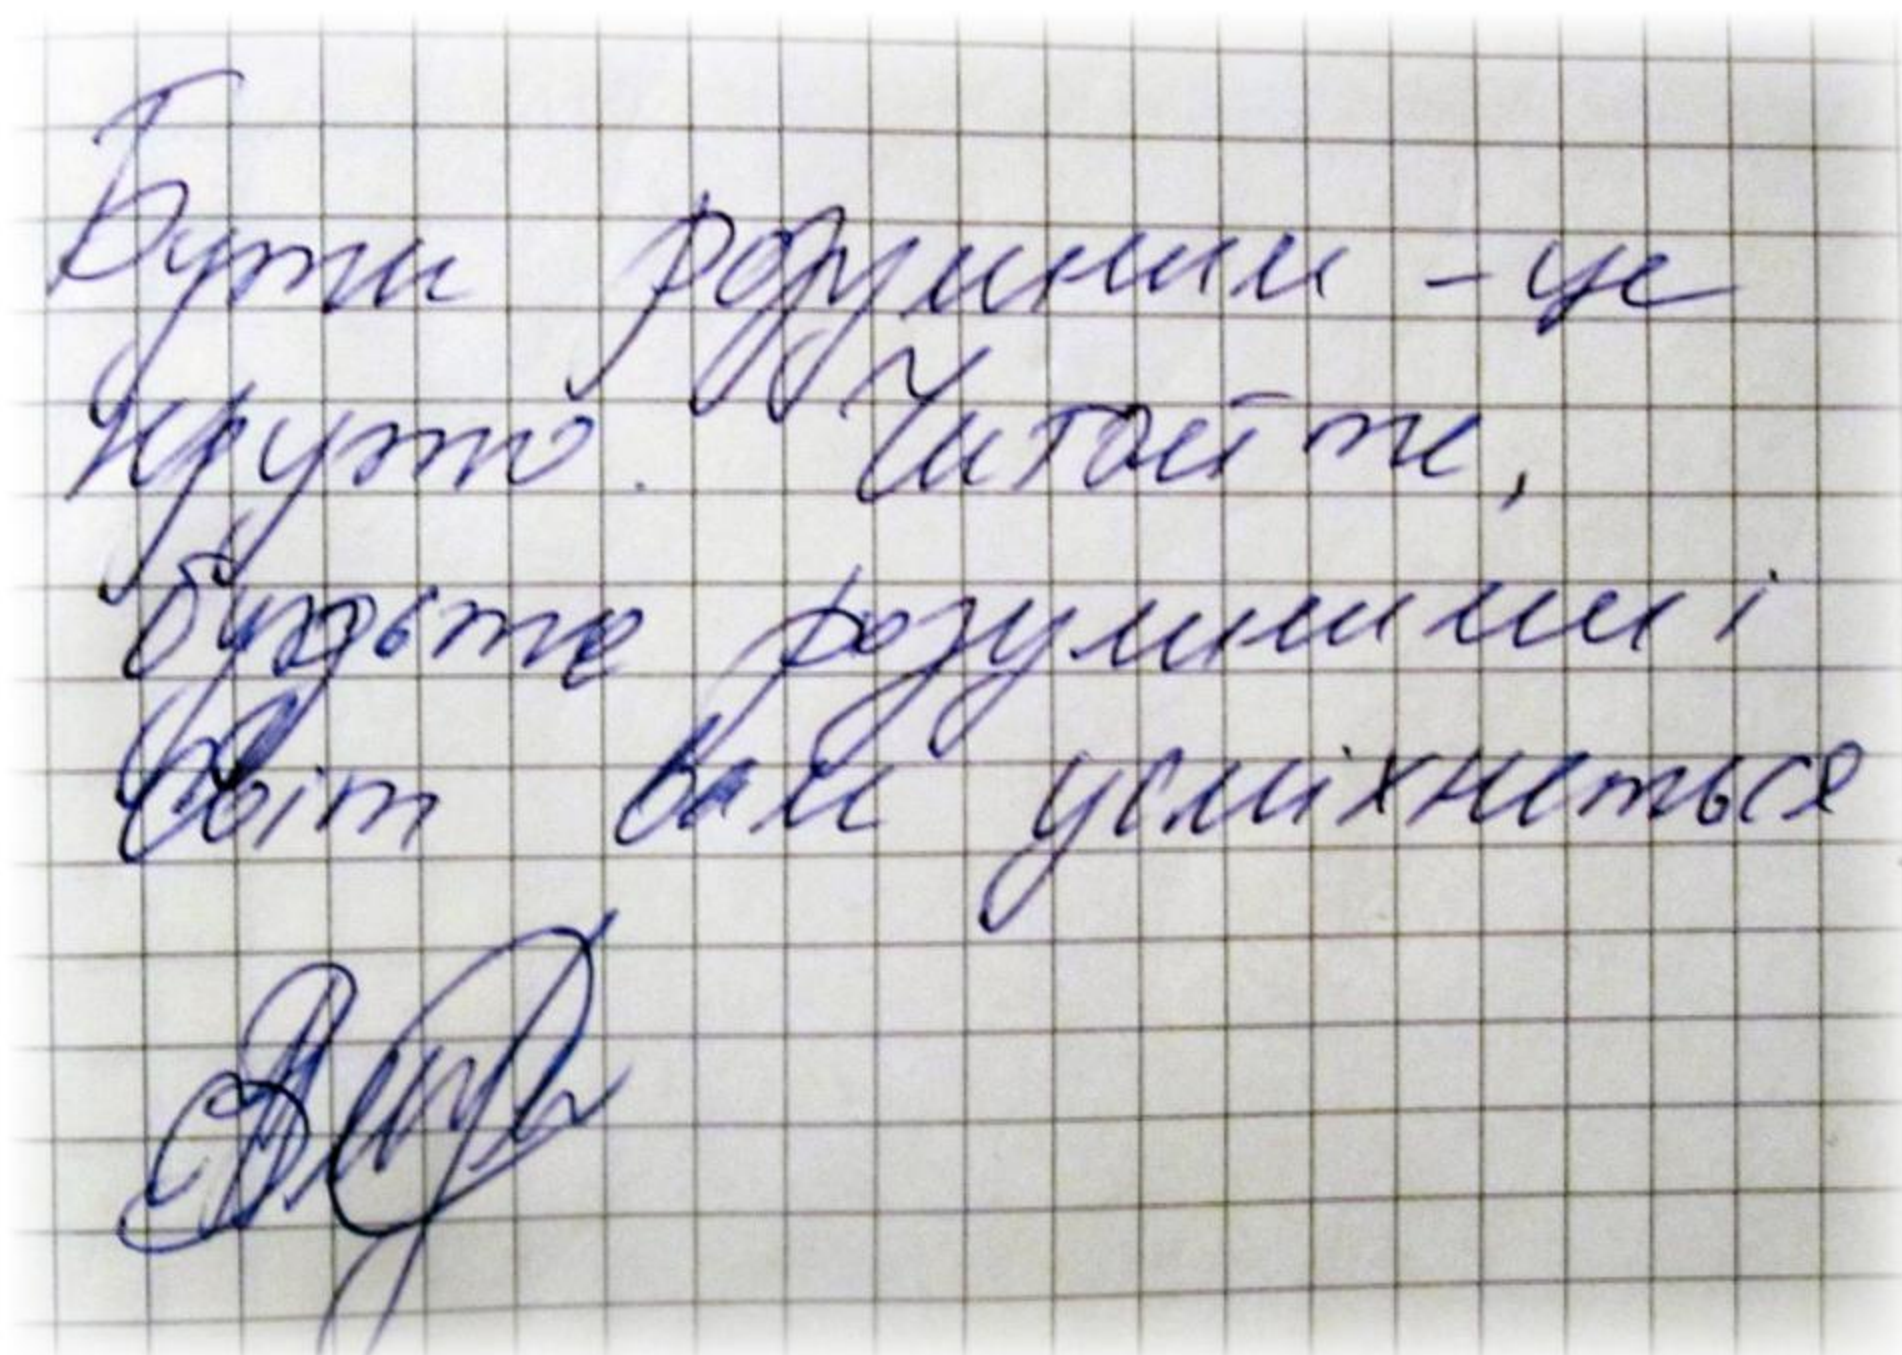 Бути розумним - це
круто. Читайте,
будьте розумними і
світ вам усміхнеться